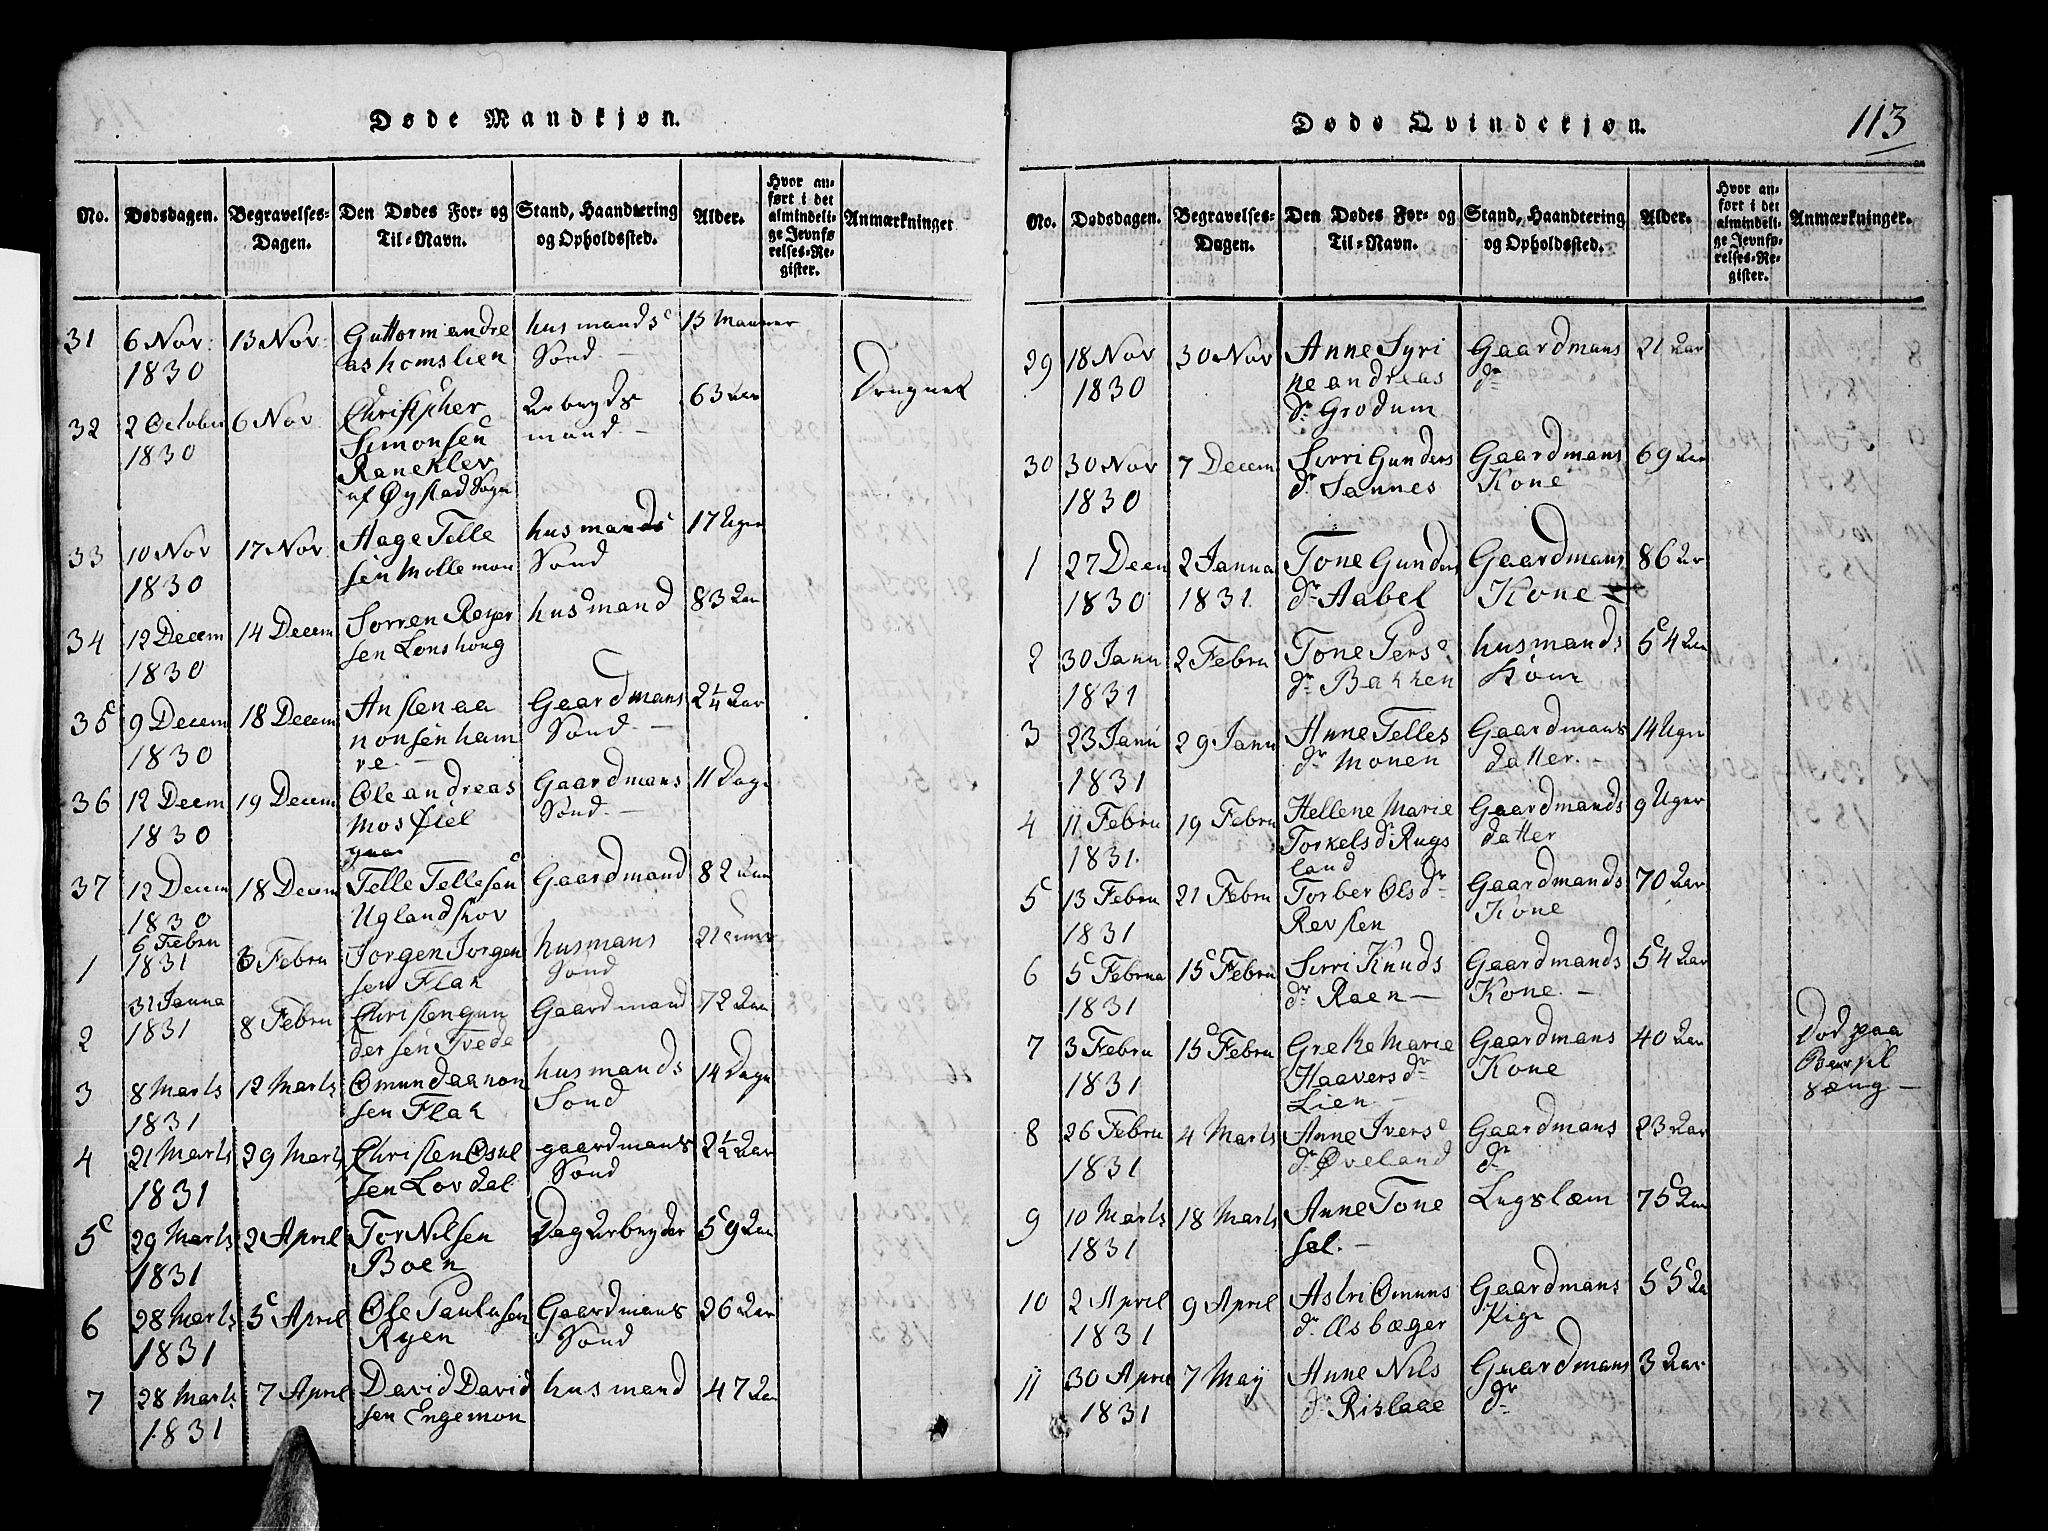 Døde Mandkjøn.
No.
Dødsdagen.
Begravelses-
Dagen.
Den Dødes For- og
Til-Navn.
Stand, Haandtering
og Opholdssted.
Alder.
Hvor an-
ført i det
almindeli-
ge Jevnfø-
relses-Re-
gister.
Anmærkninger
31 6 Nov: 13 Nov: Guttorm andre husmands 13 Maaner
1830 as homslien Sønd —
32 2 October 6 Nov Christpher Arbeyds 63 Aar Drugnet
1830 Simonsen mand. —
Raneklev
af Øystad Sogn
33 10 Nov 17 Nov Aage Telle husmands 17 Uger
1830 sen Mollemon Sønd
34 12 Decem 14 Decem Sørren Reyer husmand 83 Aar
1830 sen Lonshoug
35 9 Decem 18 Decem Ansten aa Gaardmans 2¼ Aar
1830 nonsen ham Sønd. —
re. —
36 12 Decm 19 Decem Ole andreas Gaardmans 11 Dage
1830 Mosfiel Sønd. —
37 12 Decem 18 Decem Telle Tellesen Gaardmand 82 Aar
1830 Uglandskov
1 6 Febru 8 Febru Jorgen Jorgen husmans 21 Aar
1831 sen Flak Sønd
2 31 Janna 8 Febru Christen gun Gaardmand 72 Aar
1831 dersen Tvede
3 8 Marts 12 Marts Omund aanon husmands 14 Dage
1831 sen Flak Sønd
4 21 Marts 29 Marts Christen Osul gaardmans 2½ Aar
1831 sen Lovdal Sønd
5 29 Marts 2 April Tor Nilsen Dag Arbeyder 59 Aar
1831 Boen
6 28 Marts 5 April Ole Paulusen Gaardmans 26 Aar
1831 Ryen Sønd
7 28 Marts 7 April David David husmand 47 Aar
1831 sen Engemon
Døde Qvindekjøn.
113
No.
Dødsdagen.
Begravelses-
Dagen.
Den Dødes For- og
Til-Navn.
Stand, Haandtering
og Opholdssted.
Alder.
Hvor an-
ført i det
almindeli-
ge Jevnfø-
relses-Re-
gister.
Anmærkninger.
29 18 Nov 30 Nov Anne Syri Gaardmans 21 aar
1830 ne andreas dr
dr Grodum
30 30 Nov 7 Decem Sirri Gunders Gaardmans 69 Aar
1830 dr Sannes Kone
1 27 Decm 2 Janna Tone Gunders Gaardmans 86 Ar
1830 1831. dr Aabel Kone
2 30 Janu 2 Febru Tone Pers husmands 54 Aar
1831 dr Bakken Kone
3 23 Janu 29 Janu Anne Telles Gaardmans 14 Uger
1831 dr Monen datter. —
4 11 Febru 19 Febru Hellene Marie Gaardmands 9 Uger
1831. Torkels dr Rugs datter
land
5 13 Febru 21 Febru Torber Ols dr Gaardmands 70 Aar
1831 Revsen Kone
6 5 Februa 15 Febru Sirri Knuds Gaardmands 54 Aar
1831 dr Raen — Kone. —
7 3 Febru 15 Febru Grethe Marie Gaardmans 40 Aar Dod paa
1831 Haavers dr Kone Barsel
Lien — sæng —
8 26 Febru 4 Marts Anne Ivers Gaardmans 23 Aar
1831 dr Øveland dr
9 10 Marts 18 Marts Anne Tone Lugslæm 75 Aar
1831 sel. —
10 2 April 9 April Astri Omuns Gaardmans 55 Aa
1831 dr Æsbæger Kige
11 30 April 7 May Anne Nils Gaardmans 3 Aar
1831 dr Rislaae dr